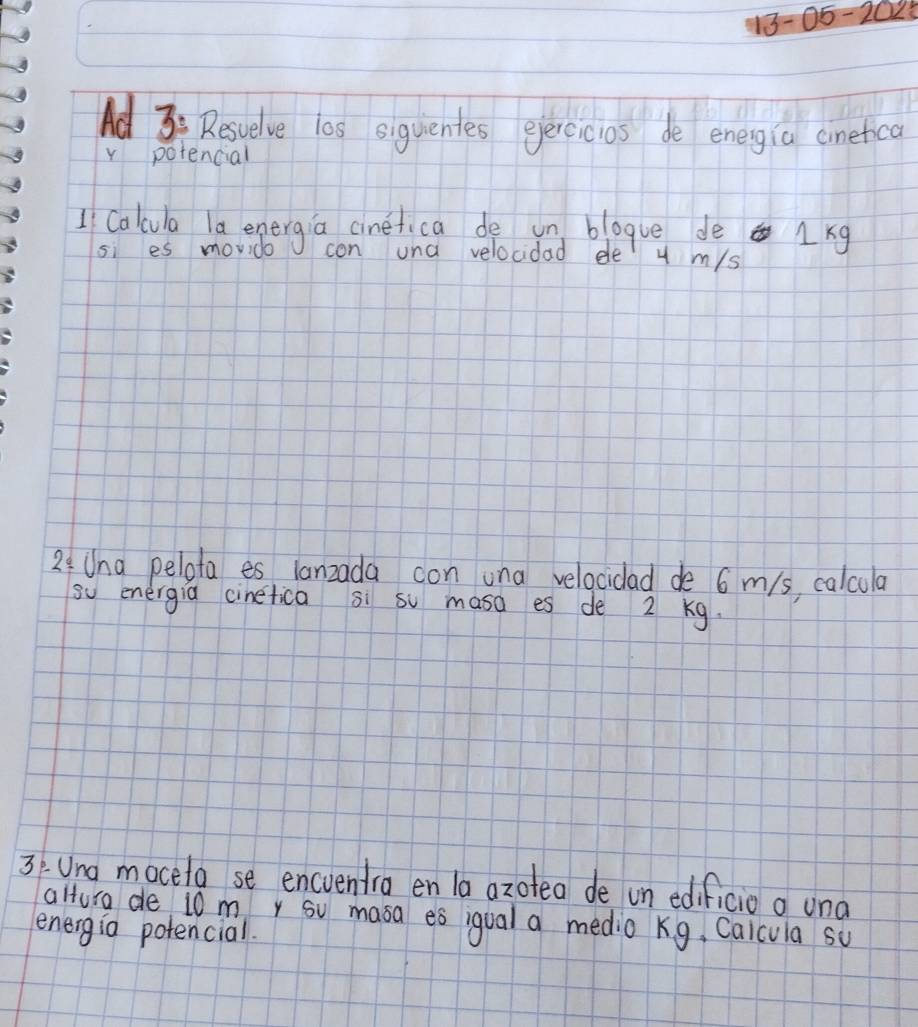 13-05-202
Act 3: Resuelve los siguientes ejercicios de energía cinetica
y potencial
1: Calcula la energía cinética de un bloque de 1 kg
si es movido con una velocidad de 4 m/s
2: Una pelota es lanzada con una velocidad de 6 m/s, calcula
su energía cinética si su masa es de 2 kg.
3: Una maceta se encuentra en la azotea de un edificio a una
altura de 10 m y su masa es igual a medio Kg. Calcula su
energía potencial.